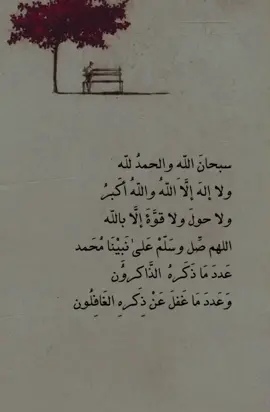 سبحانَ اللّه والحمدُ للّه
ولا إلهَ إلَّا اللّهُ واللّهُ أكبرُ
ولا حولَ ولا قوَّةَ إلَّا باللّه
اللهم صِّل وسَلّمْ عَلىٰ نَبيْنَا مُحَمد
عَددَ مَا ذَكَرهُ الذَّاكرِوُن
وَعَددَ مَا غَفلَ عَنْ ذِكَرهِ الغَافِلُون